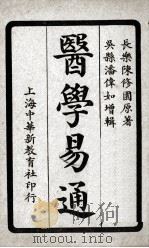 長樂陳修園原著
吳縣潘偉如增輯
醫學易通
上海中華新教育社印行